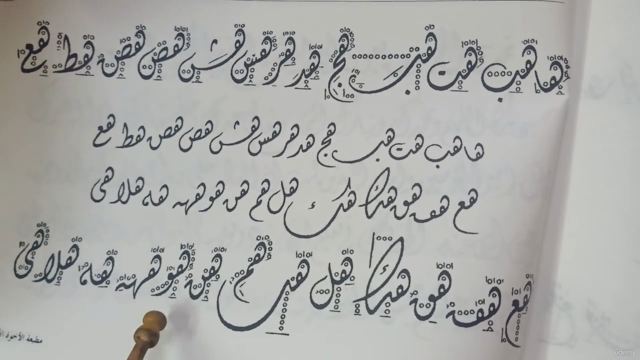 ها هب هت هب هج هد هر هس هش هص هض هط هع
ها هب هت هب هج هد هر هس هش هص هض هط هع
هع هف هق هك هك هل هم هن هو هه هه هلا هى
هع هف هق هك هك هل هم هن هو هه هه هلا هى
مطبعة الأخوة